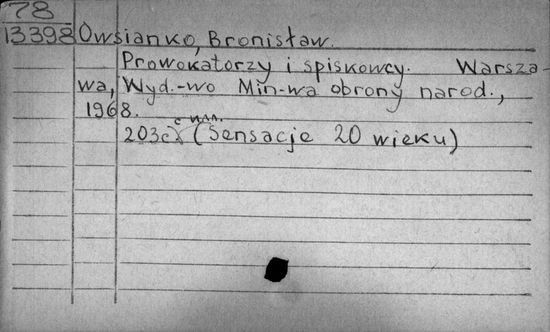 78
13398 Owsianko, Bronisław.
Prowokatorzy i spiskowcy. Warsza-
wa, Wyd.-wo Min-wa obrony narod.,
1968.
с илл.
203c. (Sensacje 20 wieku)